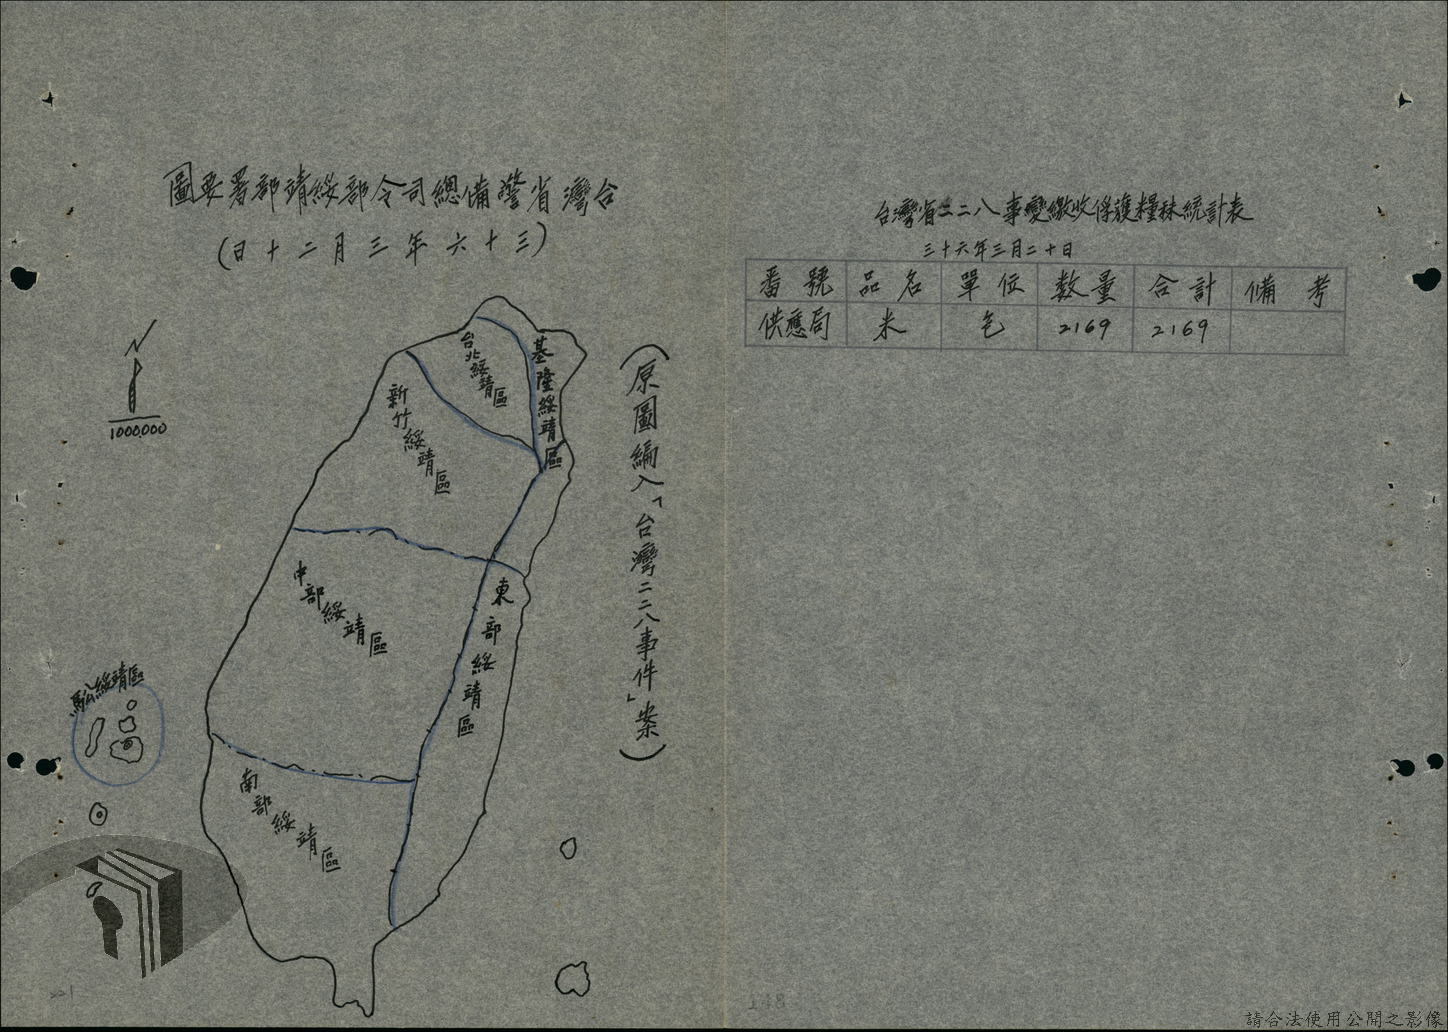 台灣省警備總司令部綏靖部署要圖
(三十六年三月二十日)
1000.000
台北綏靖區
基隆綏靖區
新竹綏靖區
中部綏靖區
東部綏靖區
南部綏靖區
馬公綏靖區
(原圖編入「台灣二二八事件」案)
台灣省二二八事變繳收俘獲糧秣統計表
三十六年三月二十日
番號 品名 單位 数量 合計 備考
供應局 米 包 2169 2169
請合法使用公開之影像